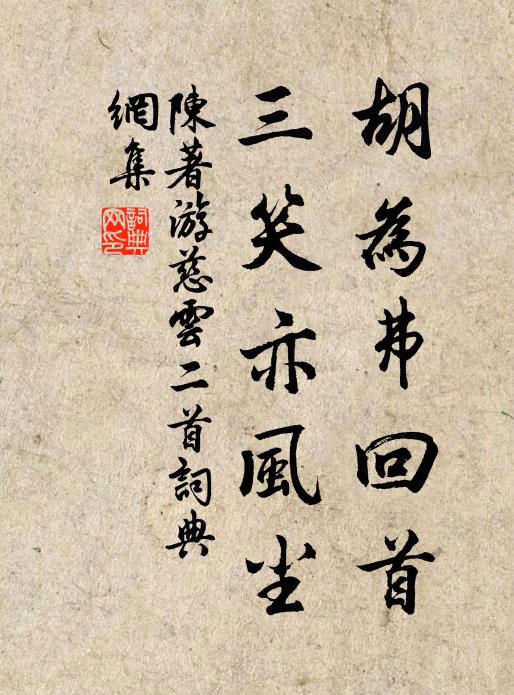 胡為弗回首
三笑亦風尘
陳著游慈雲二首詞典
網集
詞典
网印